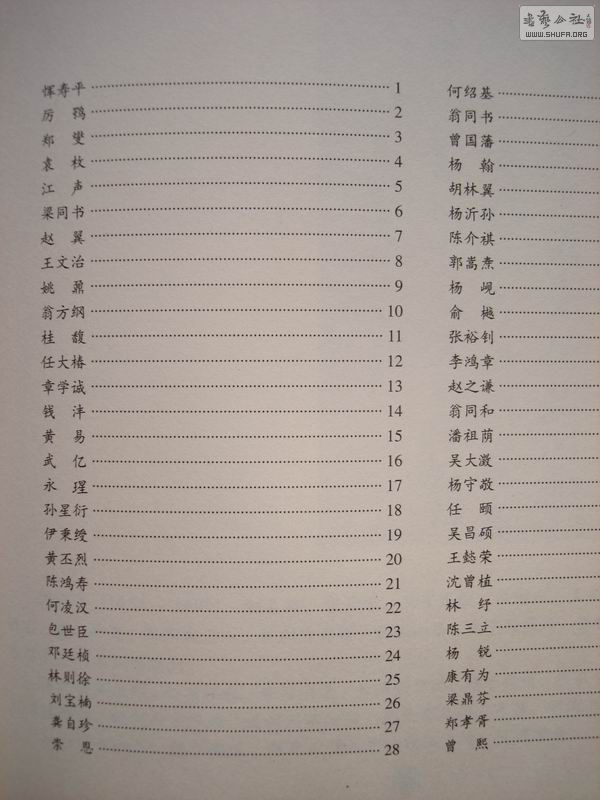 書法公社
WWW.SHUFA.ORG
恽寿平 1
厉 鹗 2
郑 燮 3
袁 枚 4
江 声 5
梁同书 6
赵 翼 7
王文治 8
姚 鼐 9
翁方纲 10
桂 馥 11
任大椿 12
章学诚 13
钱 沣 14
黄 易 15
武 亿 16
永 瑆 17
孙星衍 18
伊秉绶 19
黄丕烈 20
陈鸿寿 21
何凌汉 22
包世臣 23
邓廷桢 24
林则徐 25
刘宝楠 26
龚自珍 27
崇 恩 28
何绍基
翁同书
曾国藩
杨 翰
胡林翼
杨沂孙
陈介祺
郭嵩焘
杨 岘
俞 樾
张裕钊
李鸿章
赵之谦
翁同和
潘祖荫
吴大澂
杨守敬
任 颐
吴昌硕
王懿荣
沈曾植
林 纾
陈三立
杨 锐
康有为
梁鼎芬
郑孝胥
曾 熙